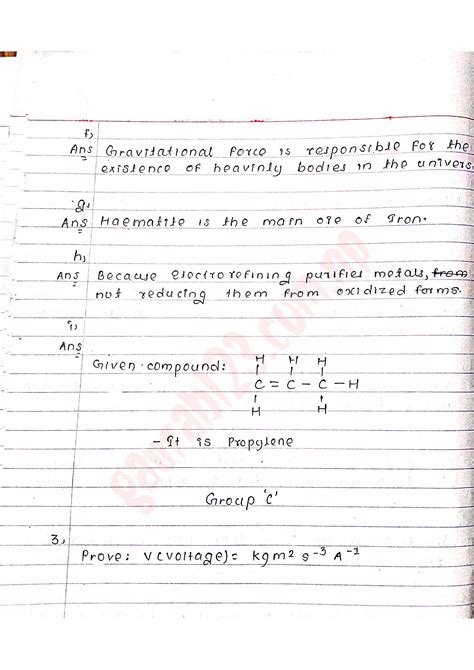 f,
Ans Gravitational force is responsible for the
existence of heavinly bodies in the univers.
g,
Ans Haematite is the main ore of Iron.
h,
Ans Because Electrorefining purifies metals, from
not reducing them from oxidized forms.
i,
Ans
Given compound:
H H H
C = C - C - H
H H
- It is Propylene
Group 'C'
3,
Prove: V(voltage) = kgm2 s-3 A-1
gaurab123.com.np